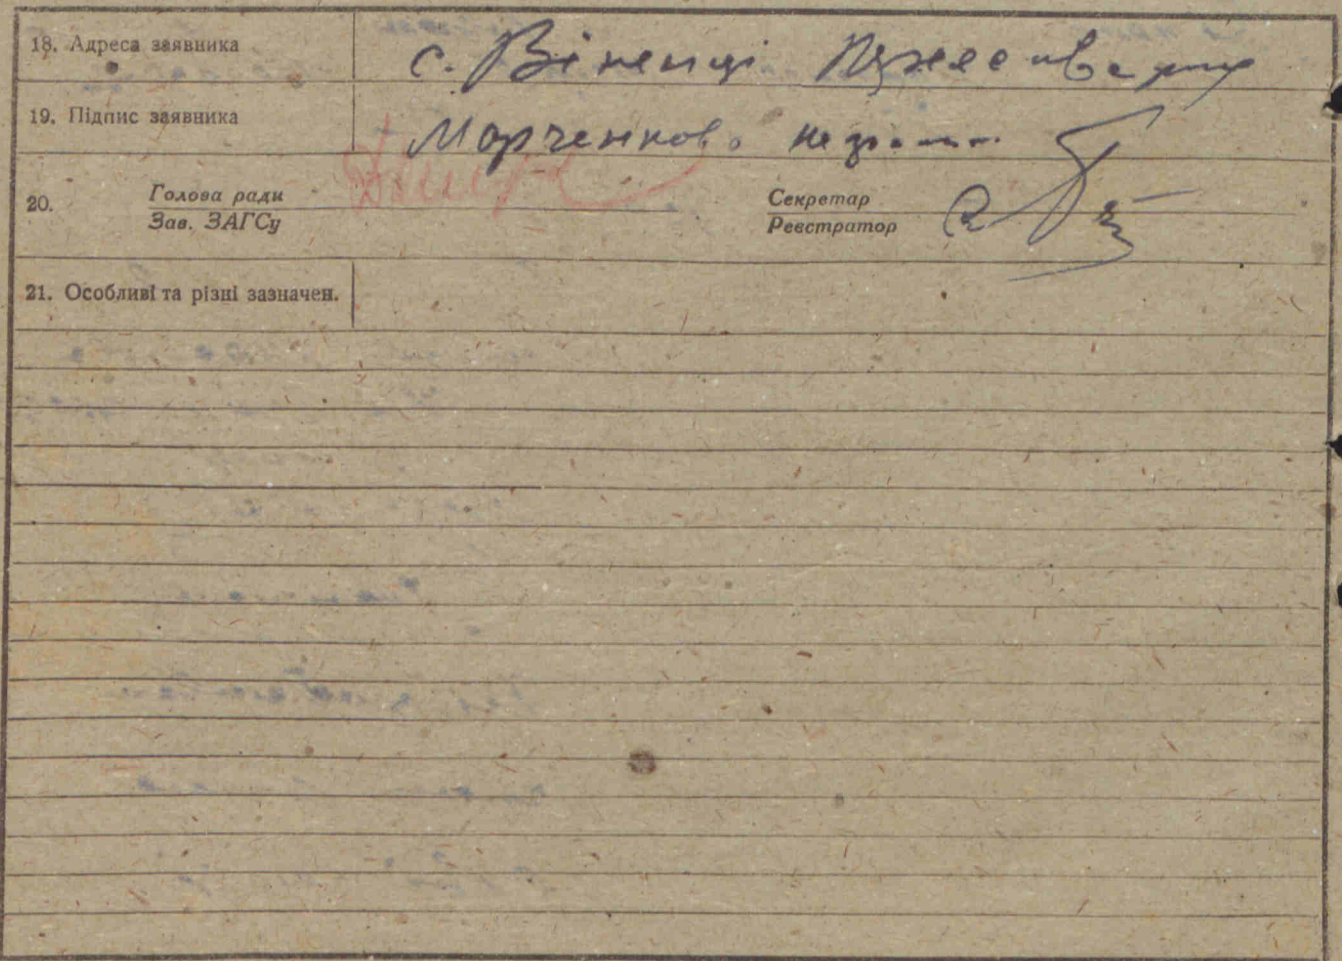 18. Адреса заявника с. Віненці
19. Підпис заявника Марченкова
20. Голова ради Секретар
Зав. ЗАГСу Реєстратор
21. Особливі та різні зазначен.